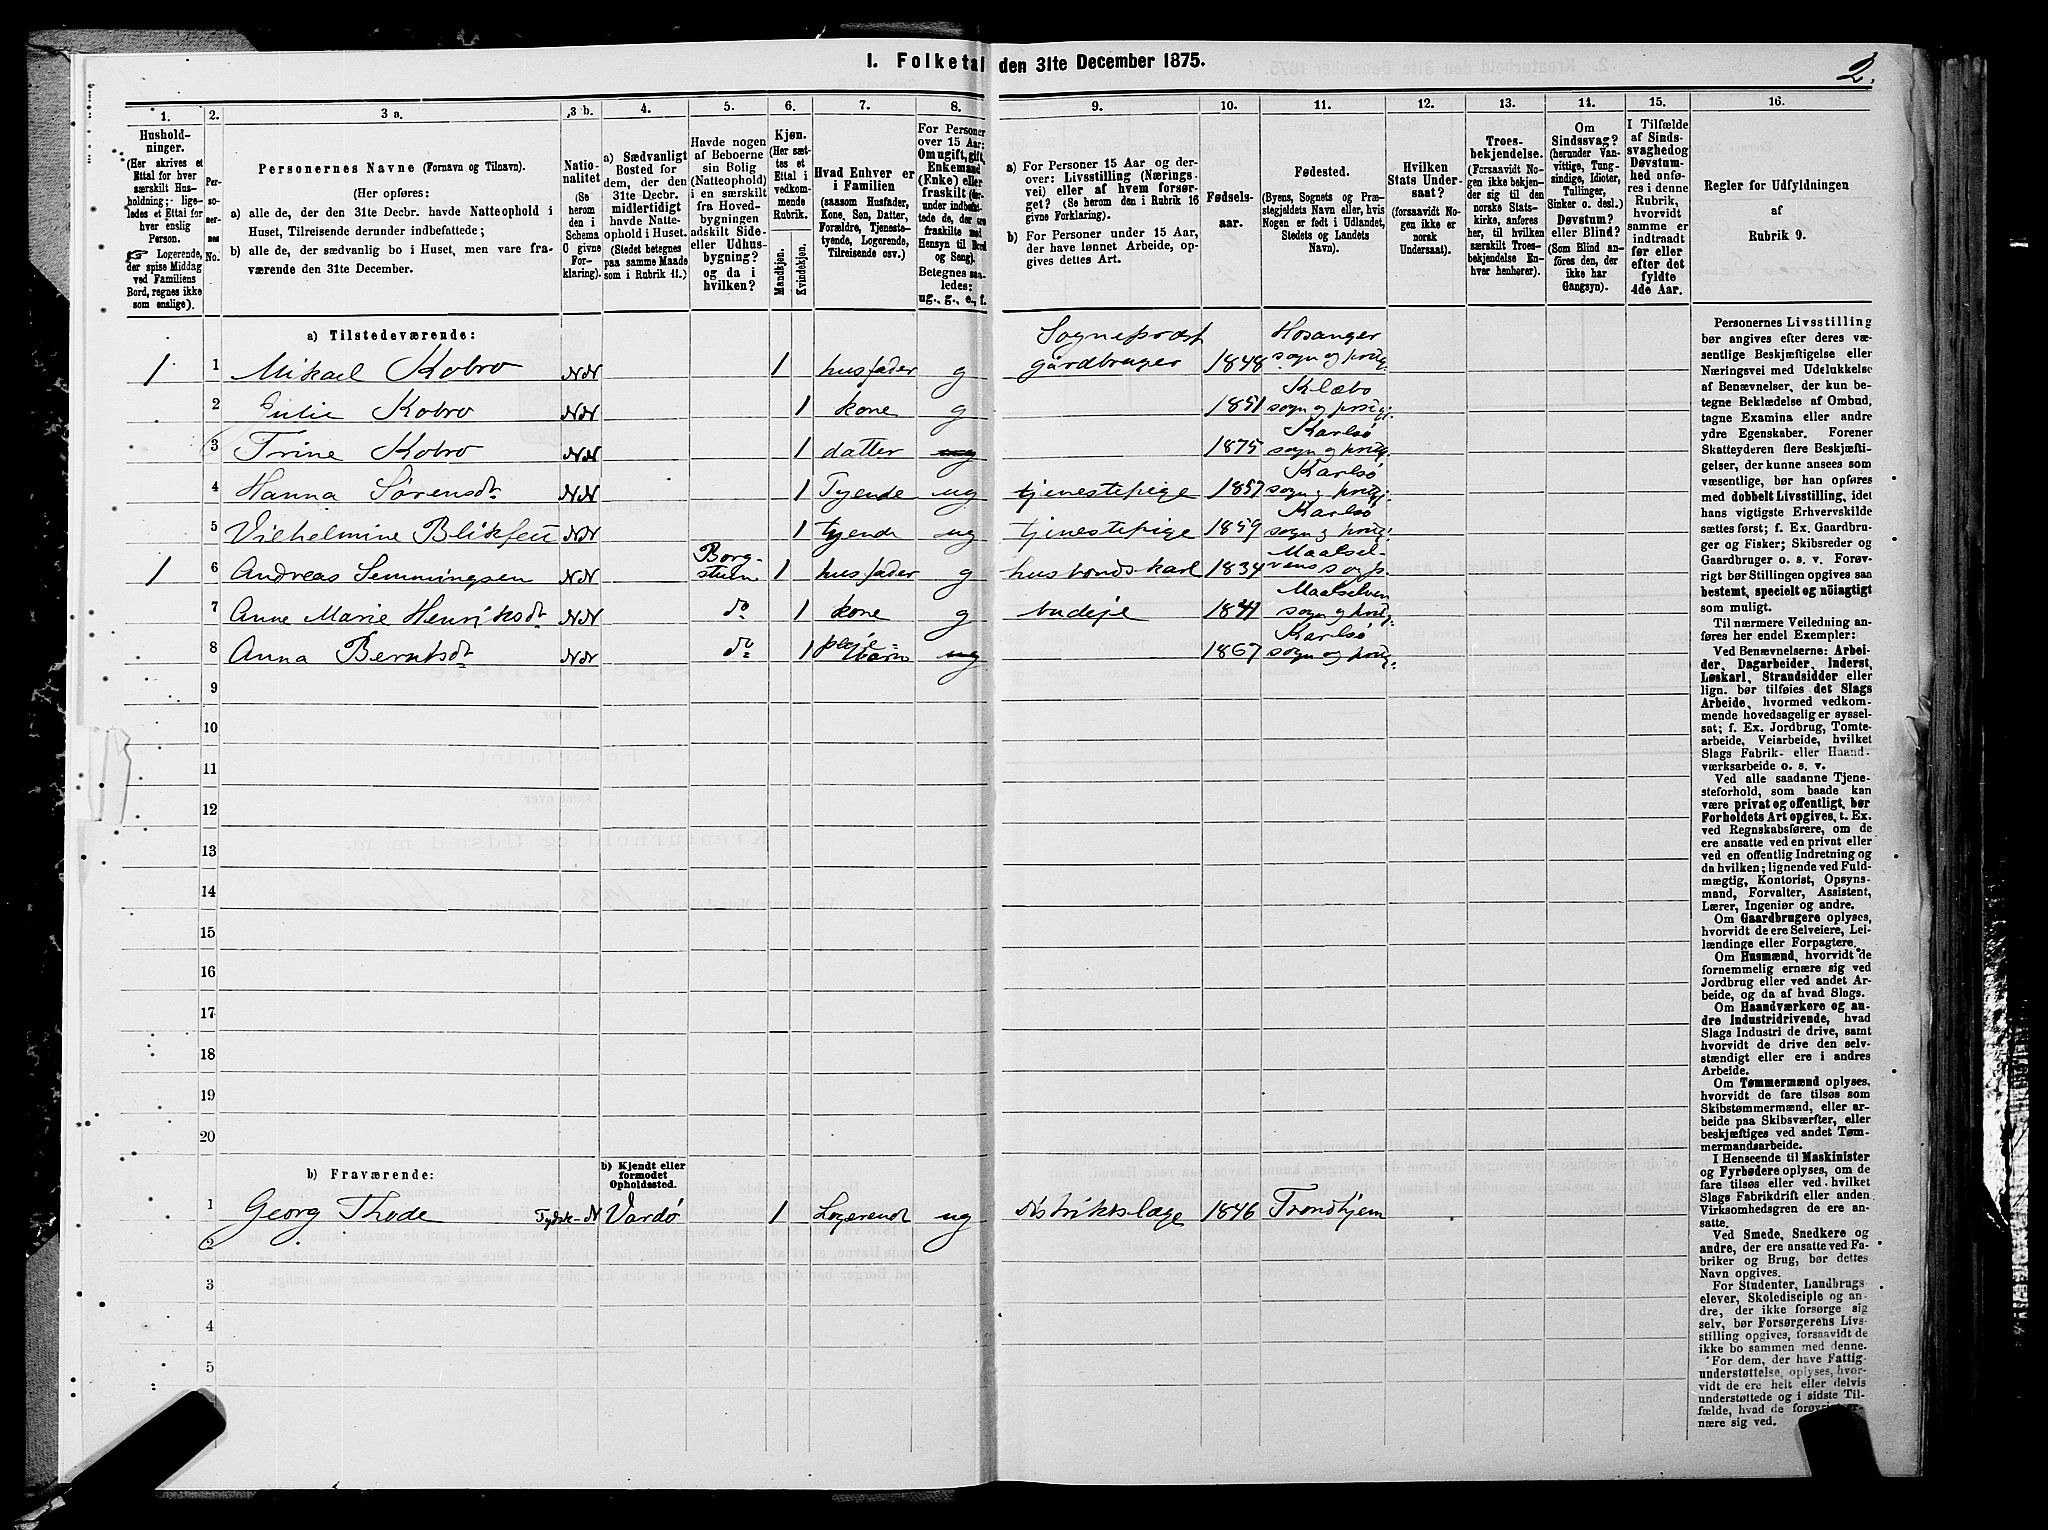 I. Folketal den 31te December 1875.
2.
1.
Hushold-
ninger.
(Her skrives et
Ettal for hver
særskilt Hus-
holdning; lige-
ledes et Ettal for
hver enslig
Person.
☞ Logerende,
der spise Middag
ved Familiens
Bord, regnes ikke
som enslige).
2.
Per-
so-
ner-
nes
No.
3 a.
Personernes Navne (Fornavn og Tilnavn).
(Her opføres:
a) alle de, der den 31te Decbr. havde Natteophold i
Huset, Tilreisende derunder indbefattede;
b) alle de, der sædvanlig bo i Huset, men vare fra-
værende den 31te December.
3 b.
Natio-
nalitet
(Se
herom
den i
Schema
C givne
For-
klaring).
4.
a) Sædvanligt
Bosted for
dem, der den
31te Decbr.
midlertidigt
havde Natte-
ophold i Huset.
(Stedet betegnes
paa samme Maade
som i Rubrik 11.)
5.
Havde nogen
af Beboerne
sin Bolig
(Natteophold)
i en særskilt
fra Hoved-
bygningen
adskilt Side-
eller Udhus-
bygning?
og da i
hvilken?
6.
Kjøn.
(Her sæt-
tes et
Ettal i
vedkom-
mende
Rubrik.
Mandkjøn.
Kvindekjøn.
7.
Hvad Enhver er
i Familien
(saasom Husfader,
Kone, Søn, Datter,
Forældre, Tjeneste-
tyende, Logerende,
Tilreisende osv.)
8.
For Personer
over 15 Aar:
Om ugift, gift,
Enkemand
(Enke) eller
fraskilt (der-
under indbefat-
tede de, der ere
fraskilte med
Hensyn til Bord
og Seng).
Betegnes saa-
ledes:
ug., g., e., f.
9.
a) For Personer 15 Aar og der-
over: Livsstilling (Nærings-
vei) eller af hvem forsør-
get? (Se herom den i Rubrik 16
givne Forklaring).
b) For Personer under 15 Aar,
der have lønnet Arbeide, op-
gives dettes Art.
10.
Fødsels-
aar.
11.
Fødested.
(Byens, Sognets og Præ-
stegjeldets Navn eller, hvis
Nogen er født i Udlandet,
Stedets og Landets
Navn).
12.
Hvilken
Stats Under-
saat?
(forsaavidt No-
gen ikke er
norsk
Undersaat).
13.
Troes-
bekjendelse.
(Forsaavidt No-
gen ikke bekjen-
der sig til den
norske Stats-
kirke, anføres
her, til hvilken
særskilt Troes-
bekjendelse En-
hver henhører).
14.
Om
Sindssvag?
(herunder Van-
vittige, Tung-
sindige, Idioter,
Tullinger,
Sinker o. desl.)
Døvstum?
eller Blind?
(Som Blind an-
føres den, der
ikke har
Gangsyn).
15.
I Tilfælde
af Sinds-
svaghed og
Døvstum-
hed anfø-
res i denne
Rubrik,
hvorvidt
samme er
indtraadt
før eller
efter det
fyldte
4de Aar.
16.
Regler for Udfyldningen
af
Rubrik 9.
a) Tilstedeværende:
1 1 Mikael Kobro NN 1 husfader g Sogneprest
gårdbruger 1848 Hosanger
sogn og prstg.
2 Julie Kobro NN 1 kone g 1851 Klæbo
sogn og prstgj.
3 Trine Kobro NN 1 datter ug 1875 Karlsø
sogn og prstg.
4 Hanna Sørensdr NN 1 Tyende ug tjenestepige 1857 Karlsø
sogn og prstgj.
5 Vilhelmine Blikfeu NN 1 tyende ug tjenestepige 1859 Karlsø
sogn og prstg.
1 6 Andreas Semmingsen NN Borg-
stuen 1 husfader g husbondskarl 1834 Maalsel-
vens s og p.
7 Anne Marie Henriksdr NN do 1 kone g budeje 1841 Maalselven
sogn og prstg.
8 Anna Berntsdr NN do 1 pleje-
barn ug 1867 Karlsø
sogn og prstg.
9
10
11
12
13
14
15
16
17
18
19
20
b) Fraværende:
b) Kjendt eller
formodet
Opholdssted.
1 Georg Thode Tydsk-N Vardø 1 Logerende ug Distriktslæge 1846 Trondhjem
2
3
4
5
Personernes Livsstilling
bør angives efter deres væ-
sentlige Beskjæftigelse eller
Næringsvei med Udelukkelse
af Benævnelser, der kun be-
tegne Beklædelse af Ombud,
tagne Examina eller andre
ydre Egenskaber. Forener
Skatteyderen flere Beskjæfti-
gelser, der kunne ansees som
væsentlige, bør han opføres
med dobbelt Livsstilling, idet
hans vigtigste Erhvervskilde
sættes først; f. Ex. Gaardbru-
ger og Fisker; Skibsreder og
Gaardbruger o. s. v. Forøv-
rigt bør Stillingen opgives saa
bestemt, specielt og nøiagtigt
som muligt.
Til nærmere Veiledning an-
føres her endel Exempler:
Ved Benævnelserne: Arbei-
der, Dagarbeider, Inderst,
Løskarl, Strandsidder eller
lign. bør tilføies det Slags
Arbeide, hvormed vedkom-
mende hovedsagelig er syssel-
sat; f. Ex. Jordbrug, Tomte-
arbeide, Veiarbeide, hvilket
Slags Fabrik- eller Haand-
værksarbeide o. s. v.
Ved alle saadanne Tjene-
steforhold, som baade kan
være privat og offentligt, bør
Forholdets Art opgives, t. Ex.
ved Regnskabsførere, om de
ere ansatte ved en privat eller
ved en offentlig Indretning og
da hvilken; lignende ved Fuld-
mægtig, Kontorist, Opsyns-
mand, Forvalter, Assistent,
Lærer, Ingeniør og andre.
Om Gaardbrugere oplyses,
hvorvidt de ere Selveiere, Lei-
lændinge eller Forpagtere.
Om Husmænd, hvorvidt de
fornemmelig ernære sig ved
Jordbrug eller ved andet Ar-
beide, og da af hvad Slags.
Om Haandværkere og an-
dre Industridrivende, hvad
Slags Industri de drive, samt
hvorvidt de drive den selv-
stændigt eller ere i andres
Arbeide.
Om Tømmermænd oplyses,
hvorvidt de fare tilsøs som
Skibstømmermænd, eller ar-
beide paa Skibsværfter, eller
beskjæftiges ved andet Tøm-
mermandsarbeide.
I Henseende til Maskinister
og Fyrbødere oplyses, om de
fare tilsøs eller ved hvilket
Slags Fabrikdrift eller anden
Virksomhedsgren de ere an-
satte.
Ved Smede, Snedkere og
andre, der ere ansatte ved Fa-
briker og Brug, bør dettes
Navn opgives.
For Studenter, Landbrugs-
elever, Skoledisciple og an-
dre, der ikke forsørge sig
selv, bør Forsørgerens Livs-
stilling opgives, forsaavidt de
ikke bo sammen med denne.
For dem, der have Fattig-
understøttelse, oplyses, hvor-
vidt de ere helt eller delvis
understøttede og i sidste Til-
fælde, hvad de forøvrigt er-
nære sig ved.